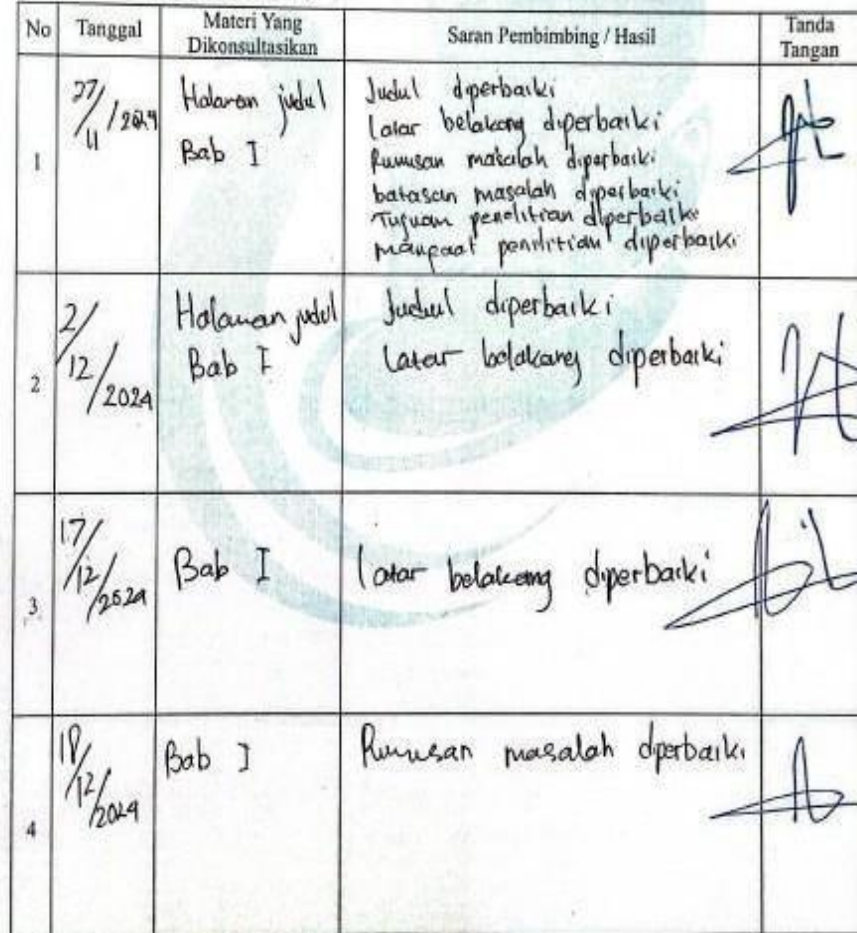 No Tanggal Materi Yang Dikonsultasikan Saran Pembimbing / Hasil Tanda Tangan
1 27/11/2024 Halaman judul Judul diperbaiki
Latar belakang diperbaiki
Bab I Rumusan masalah diperbaiki
batasan masalah diperbaiki
Tujuan penelitian diperbaiki
manfaat penelitian diperbaiki
2 2/12/2024 Halaman judul Judul diperbaiki
Bab I Latar belakang diperbaiki
3 17/12/2024 Bab I Latar belakang diperbaiki
4 18/12/2024 Bab I Rumusan masalah diperbaiki